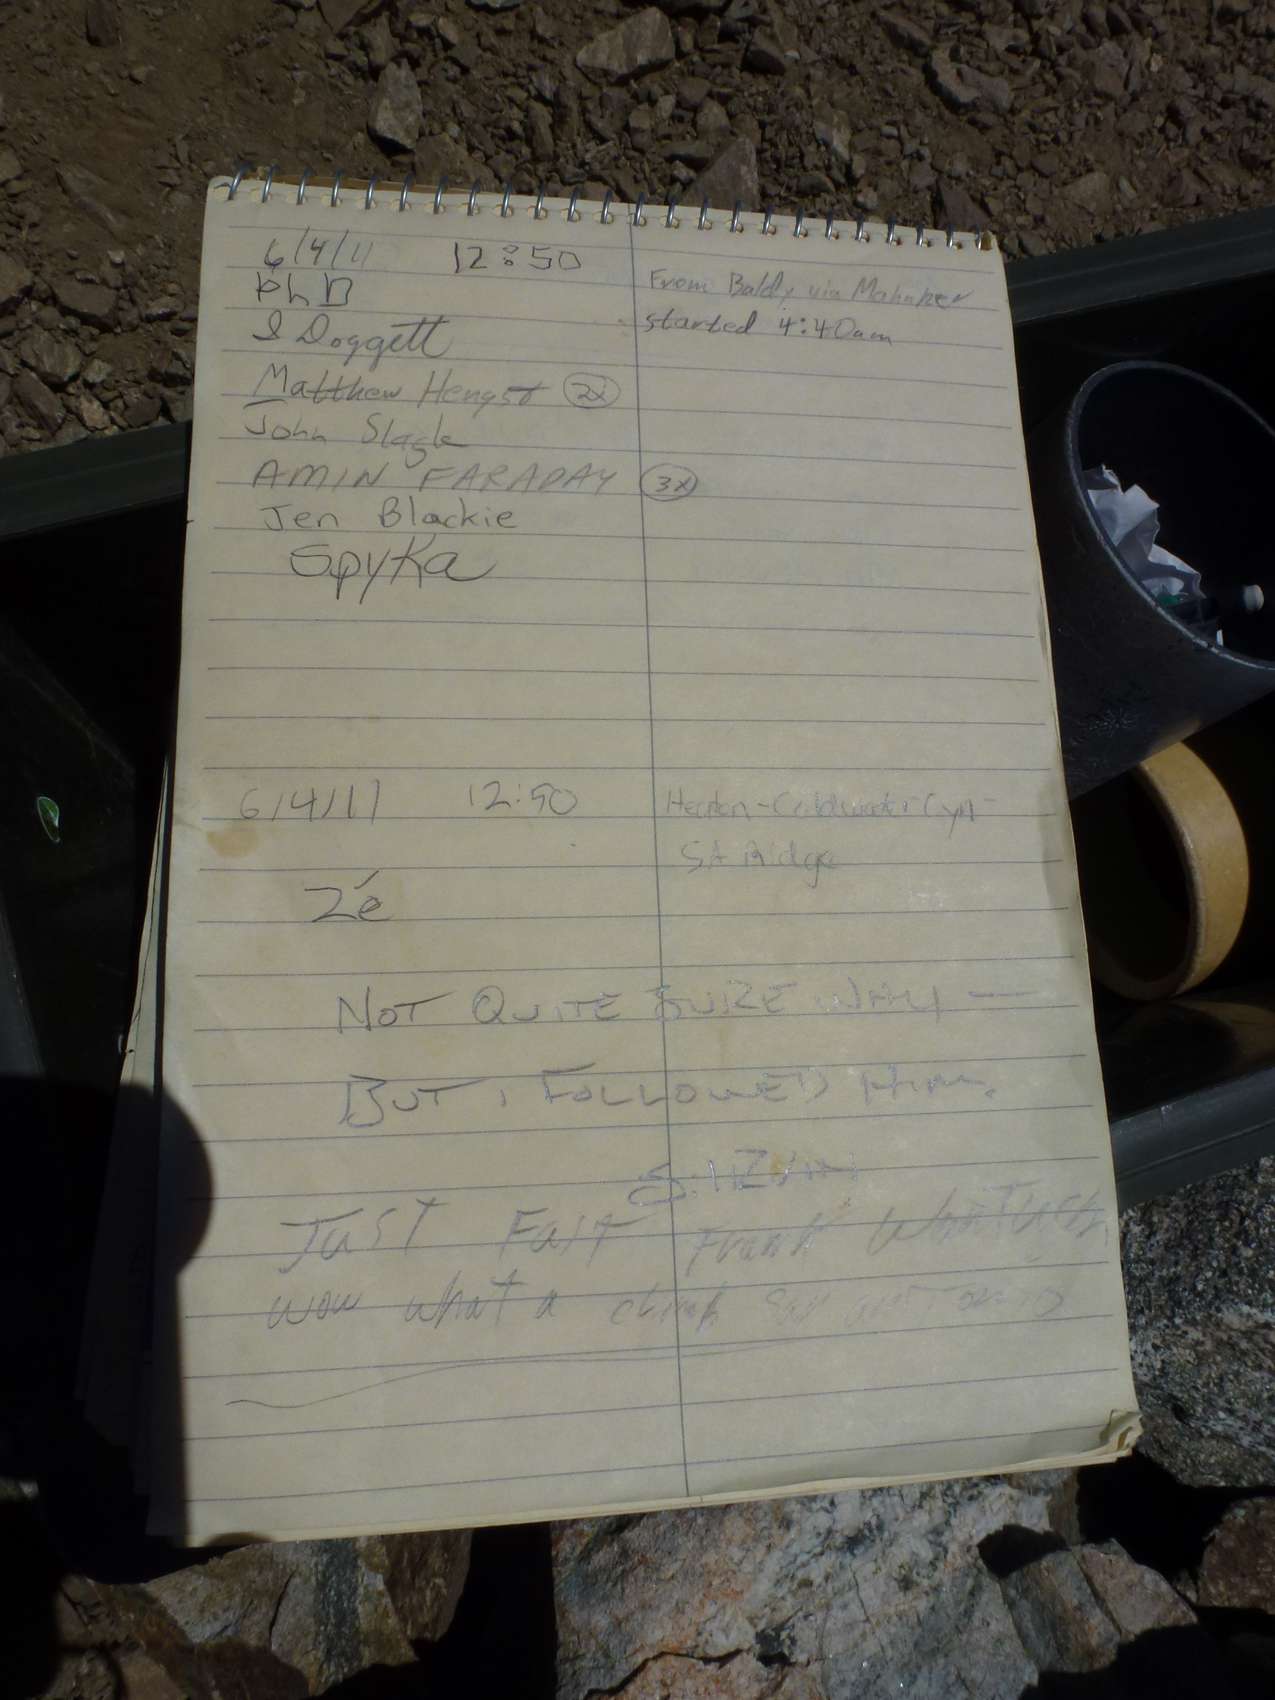 6/4/11 12:50
PhD
From Baldy via Mahnker
started 4:40am
S Doggett
Matthew Hengst 2x
John Slagle
AMIN FARADAY 3x
Jen Blackie
Spyka
6/4/11 12:50 Heaton-Coldwater Cyn-
Ridge
Zé
NOT QUITE WAY —
BUT I FOLLOWED HIM.
JUST Frank
wow what a climb San antonio